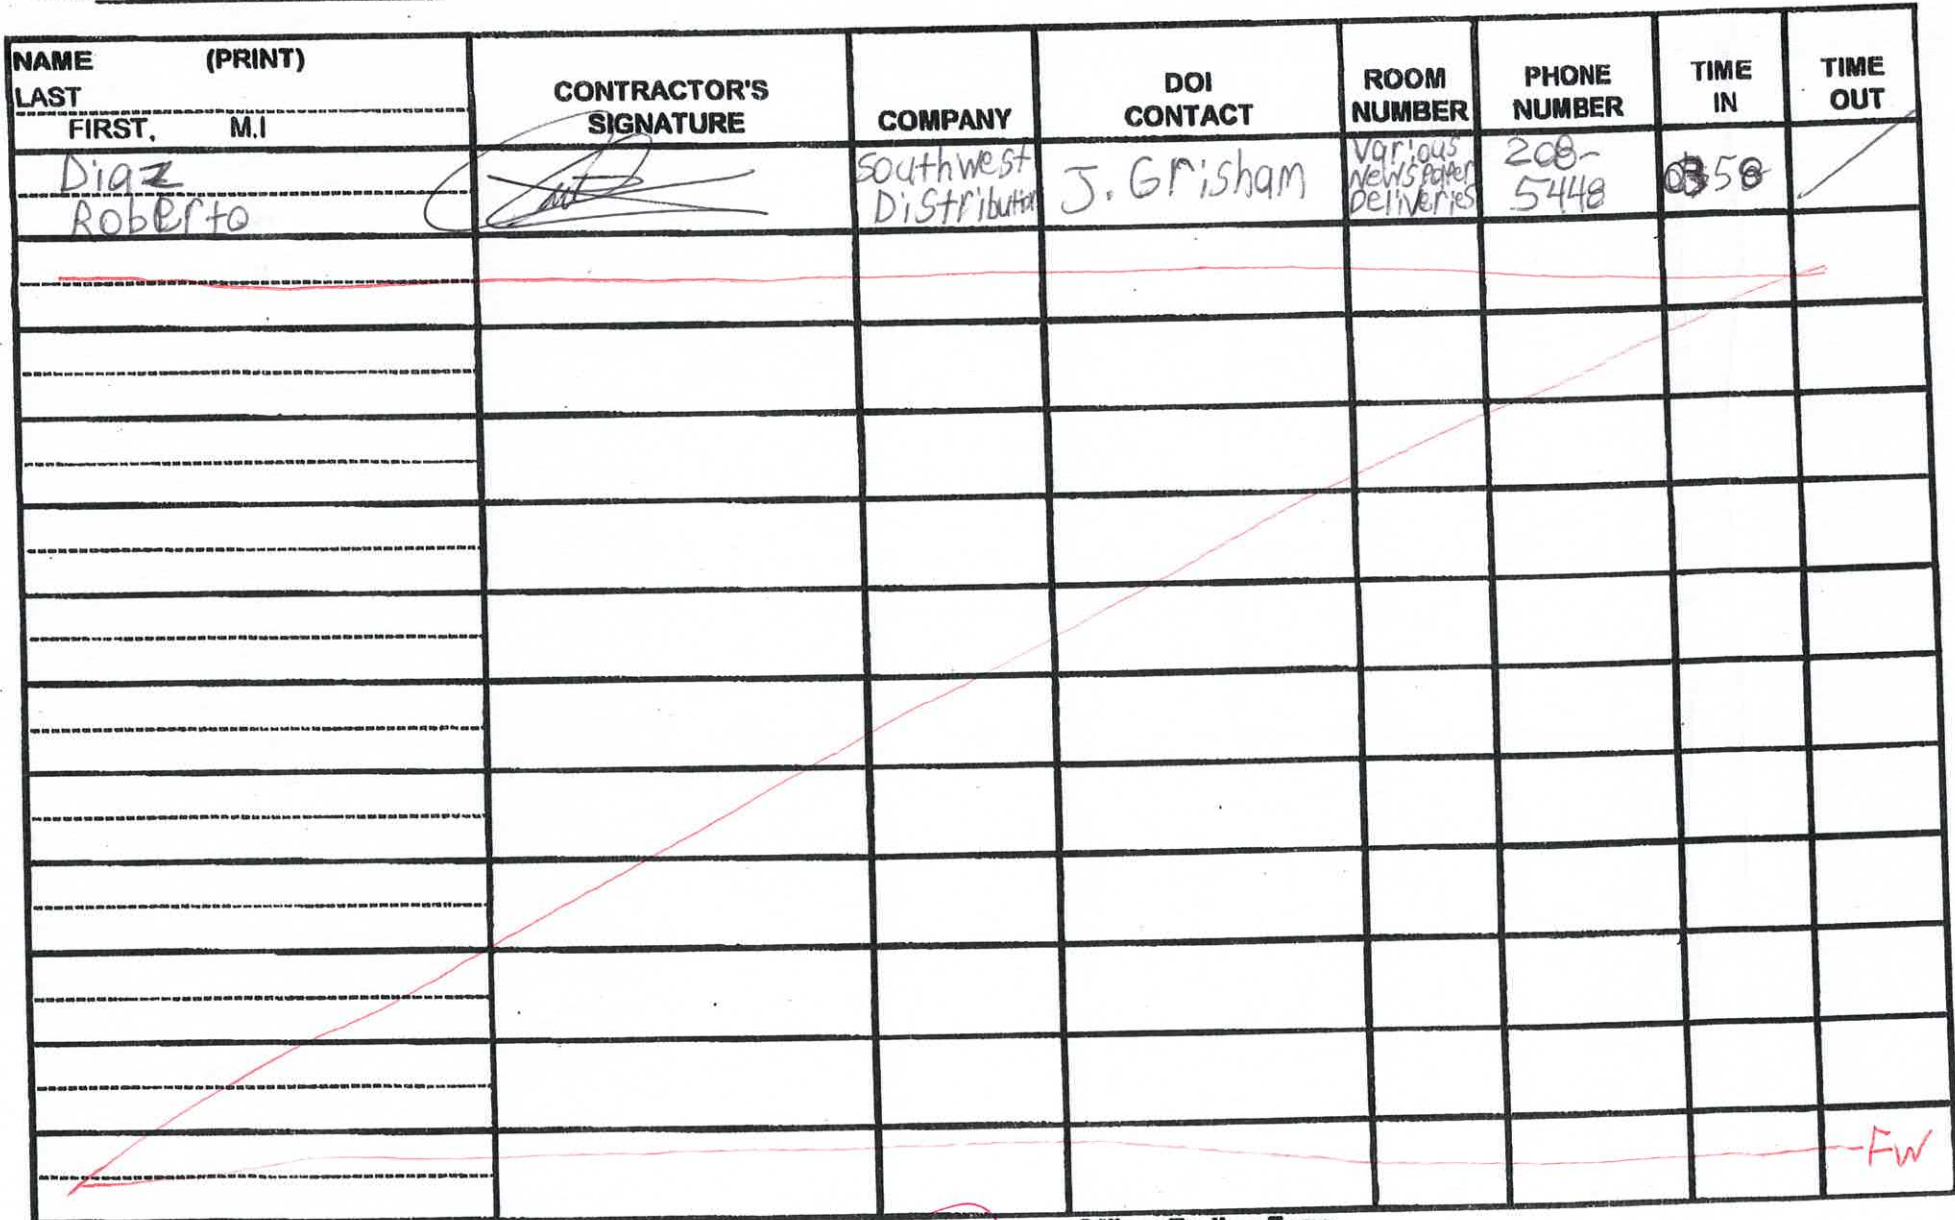 NAME (PRINT)
LAST
FIRST, M.I
CONTRACTOR'S
SIGNATURE
COMPANY
DOI
CONTACT
ROOM
NUMBER
PHONE
NUMBER
TIME
IN
TIME
OUT
Diaz
Roberto
Southwest
Distribution
J. Grisham
Various
Newspaper
Deliveries
208-
5448
0358
FW